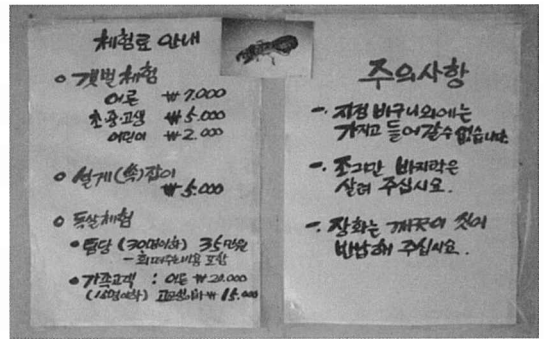 체험료 안내
○ 갯벌체험
어른 ₩7.000
초.중.고생 ₩5.000
어린이 ₩2.000
○ 설게(쏙)잡이
₩5.000
○ 독살체험
• 팀당 (30명이하) 35만원
- 회떠주는비용 포함
• 가족고객 : 어른 ₩20.000
고교생이하 ₩15.000
주의사항
-. 지정 바구니외에는
가지고 들어갈수 없습니다.
-. 조그만 바지락은
살려 주십시요.
-. 장화는 깨끗이 씻어
반납해 주십시요.